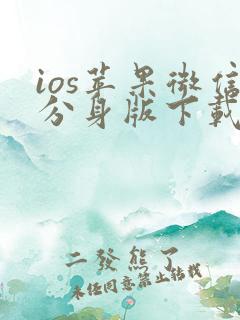 ios苹果微信
分身版下载
二發熊了
未经同意禁止转载